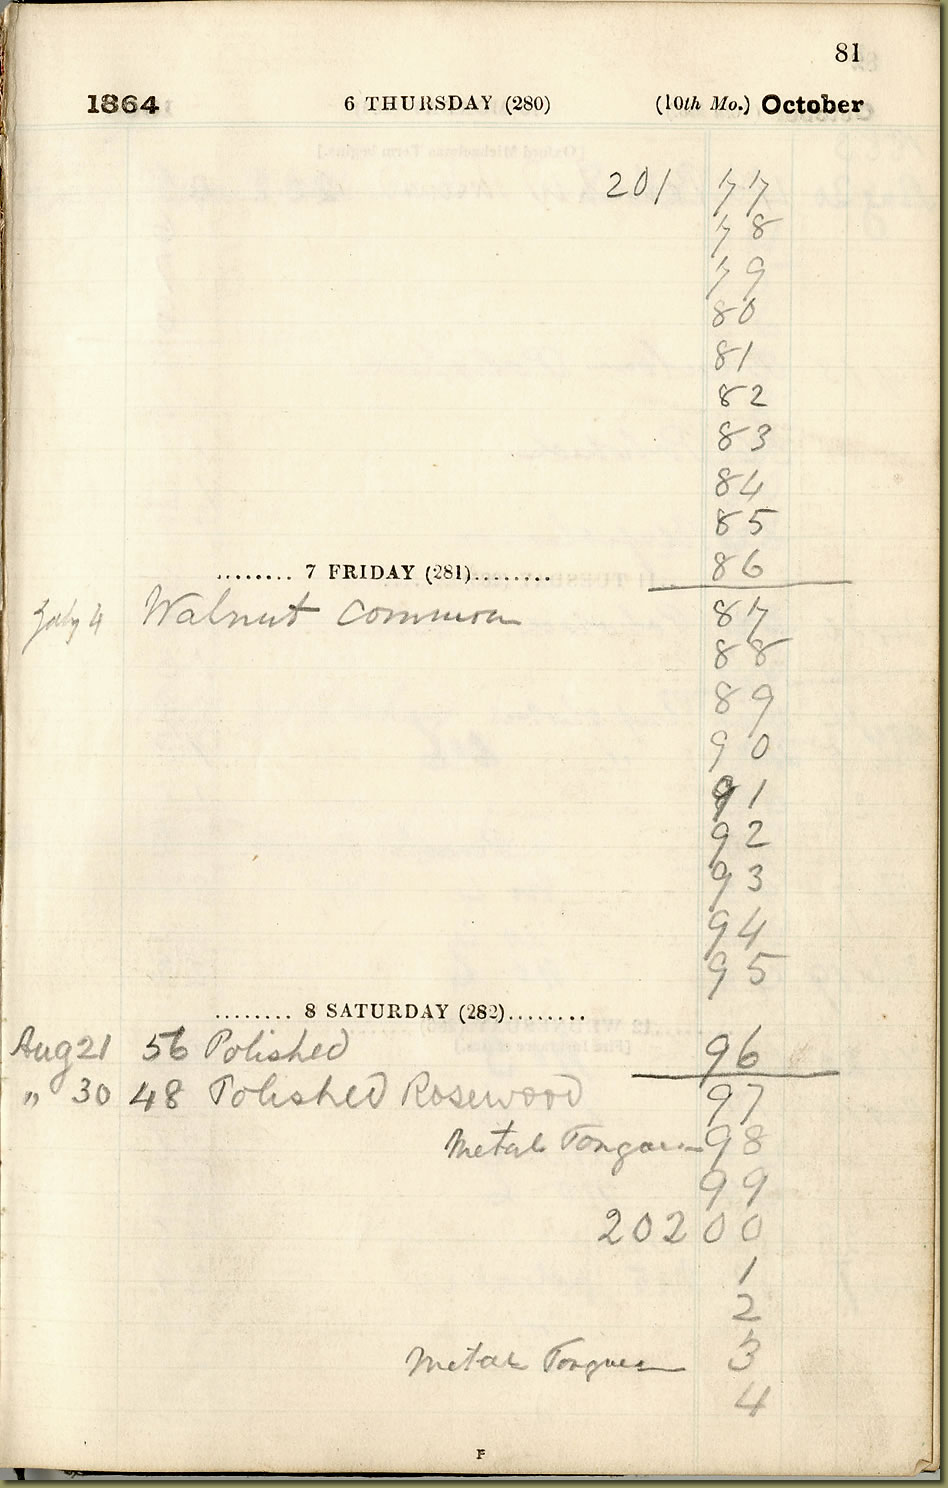 81
1864 6 THURSDAY (280) (10th Mo.) October
201 77
78
79
80
81
82
83
84
85
........ 7 FRIDAY (281)........ 86
July 4 Walnut common 87
88
89
90
91
92
93
94
95
........ 8 SATURDAY (282)........
Aug 21 56 Polished 96
" 30 48 Polished Rosewood 97
Metal Tongues 98
99
202 00
1
2
Metal Tongues 3
4
F